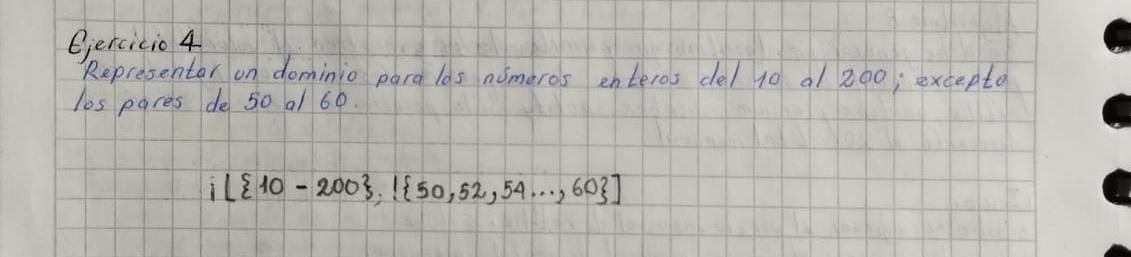 Ejercicio 4
Representar un dominio para los números enteros del 10 al 200; excepto
los pares de 50 al 60.
i[{10 - 200}; !{50,52,54...,60}]